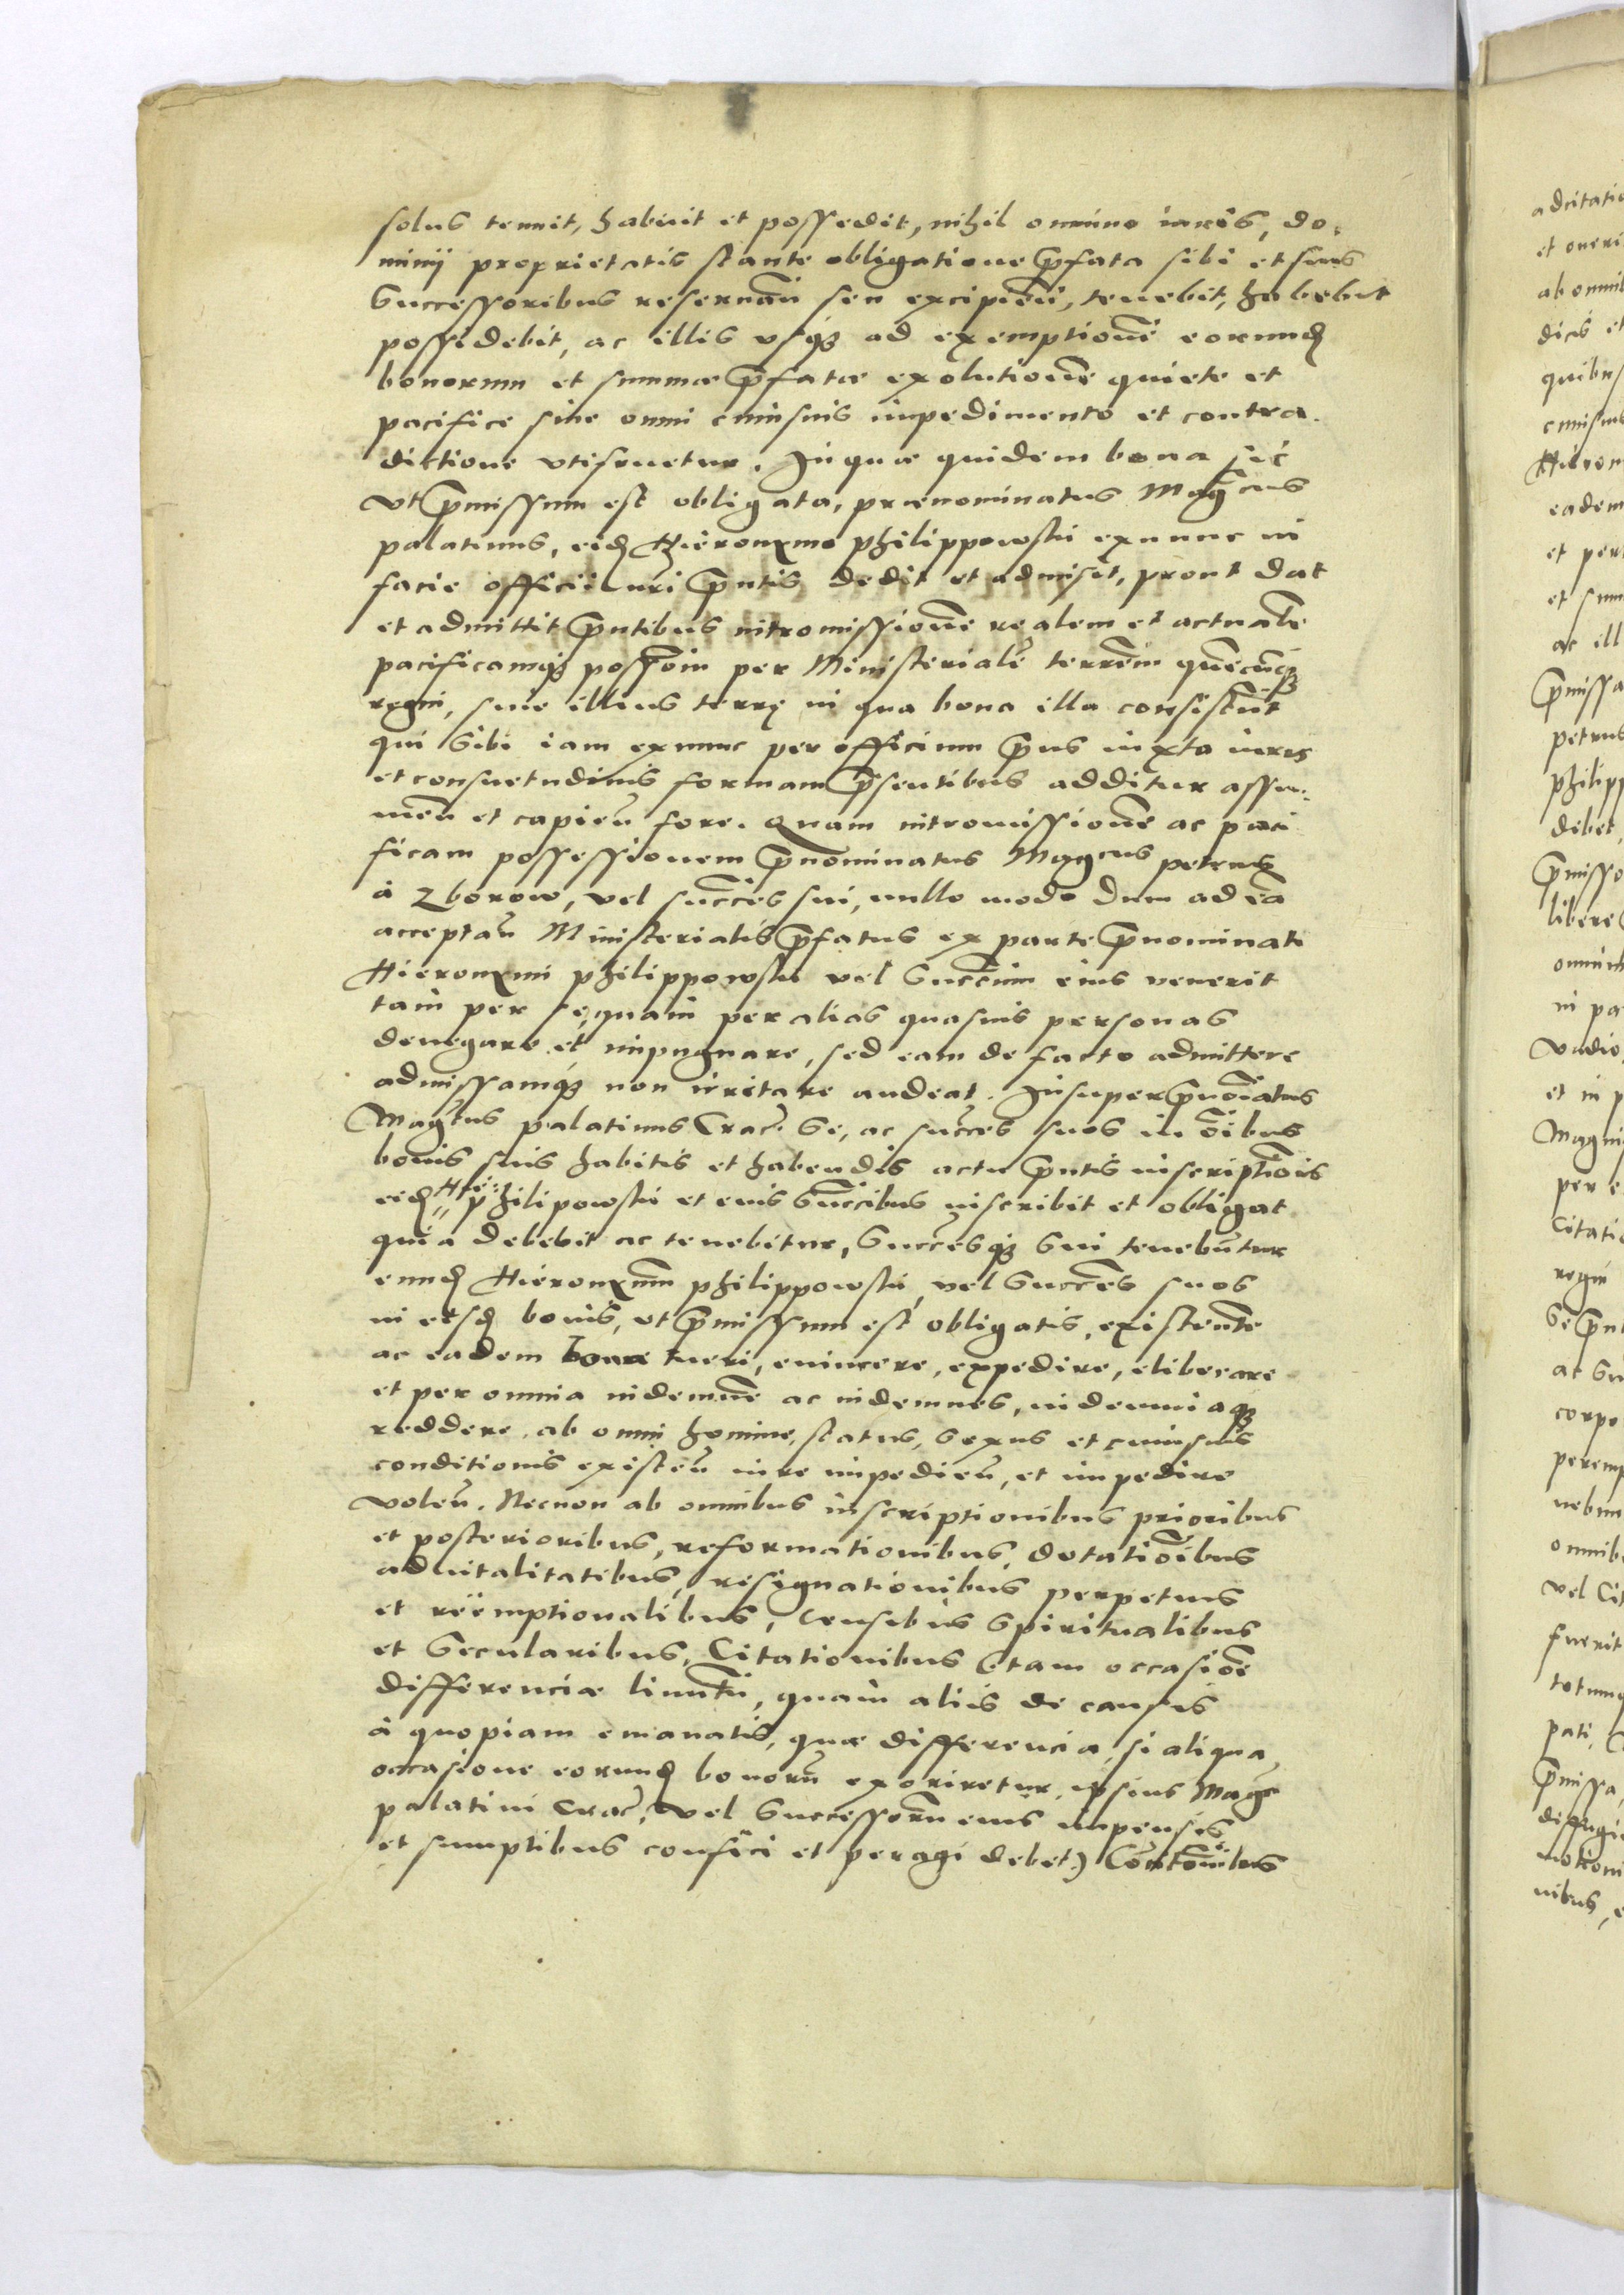 solus tenuit, habuit et possedit, nihil omnino iuris, do-
minij proprietatis stante obligatione p̄fata sibi et suis
Successoribus reseruan̄ seu excipien̄, tenebit, habebit
possidebit, ac illis vsq₃ ad exemptionē eorund̄
bonorum et summæ p̄fatæ exolutionē quiete et
pacifice sine omni cuiusuis impedimento et contra-
dictione vtifruetur. In quæ quidem bona sic
vt p̄missum est obligata, prænominatus Mag̃cus
palatinus, eid̄ Hieronymo philippowski exnunc in
facie officii nr̄i p̄ntis dedit et admisit, prout dat
et admittit p̄ntibus intromissionē realem et actualē
pacificamq₃ poss̄oin per Ministerialē terrēm quēcūq₃
regni, siue illius terrę in qua bona illa consistūt
qui sibi iam exnunc per officium p̄ns iuxta iuris
et consuetudinis formam p̄sentibus additur assu-
men̄ et capien̄ fore. Quam intromissionē ac paci
ficam possessionem p̄nominatus Mag̃cus petrus
à Zborow, vel succ̄es sui, nullo modo dum ad eā
acceptan̄ Ministerialis p̄fatus ex parte p̄nominati
Hieronymi philippowski vel succ̄um eius venerit
tam per se, quam per alias quasuis personas
denegare et impugnare, sed eam de facto admittere
admissamq₃ non irritare audeat. Insuper p̄noīatus
Mag̃cus palatinus Crac̄. se, ac succ̄es suos in oībus
bonis suis habitis et habendis actu p̄ntis inscriptiōis
eid̄ Hie: philipowski et eius succ̄ibus inscribit et obligat
quia debebit ac tenebitur, succ̄esq₃ sui tenebūtur
eund̄ Hieronymū philippowski, vel succ̄es suos
in eisd̄ bonis, vt p̄missum est obligatis, existentē
ac eadem bona tueri, euincere, expedire, eliberare
et per omnia indemnē ac indemnes, indemniaq₃
reddere, ab omni homine, status, sexus et cuiusuis
conditionis existen̄ iure impedien̄, et impedire
volen̄. Necnon ab omnibus inscriptionibus prioribus
et posterioribus, reformationibus, dotatiōibus
aduitalitatibus, resignationibus perpetuis
et reëmptionalibus, Censibus Spiritualibus
et Secularibus, Citationibus (tam occasiōe
differenciæ limitū, quam aliis de causis
à quopiam emanatis, quæ differencia, si aliqua
occasione eorund̄ bonorū exoriretur, ipsius Mag̃ci
palatini Crac̄. vel Successorū eius impensis
et sumptibus confici et peragi debet)